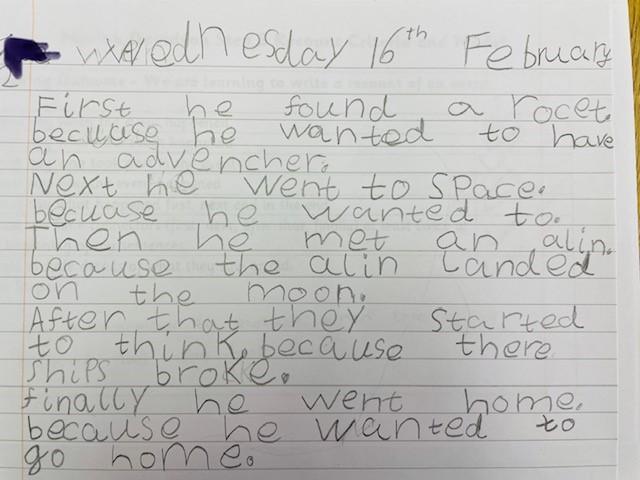 Wednesday 16th February
First he found a rocet.
becuause he wanted to have
an advencher.
Next he went to space.
becuase he wanted to.
Then he met an alin.
because the alin Landed
on the moon.
After that they started
to think, because there
ships broke.
finally he went home.
because he wanted to
go home.